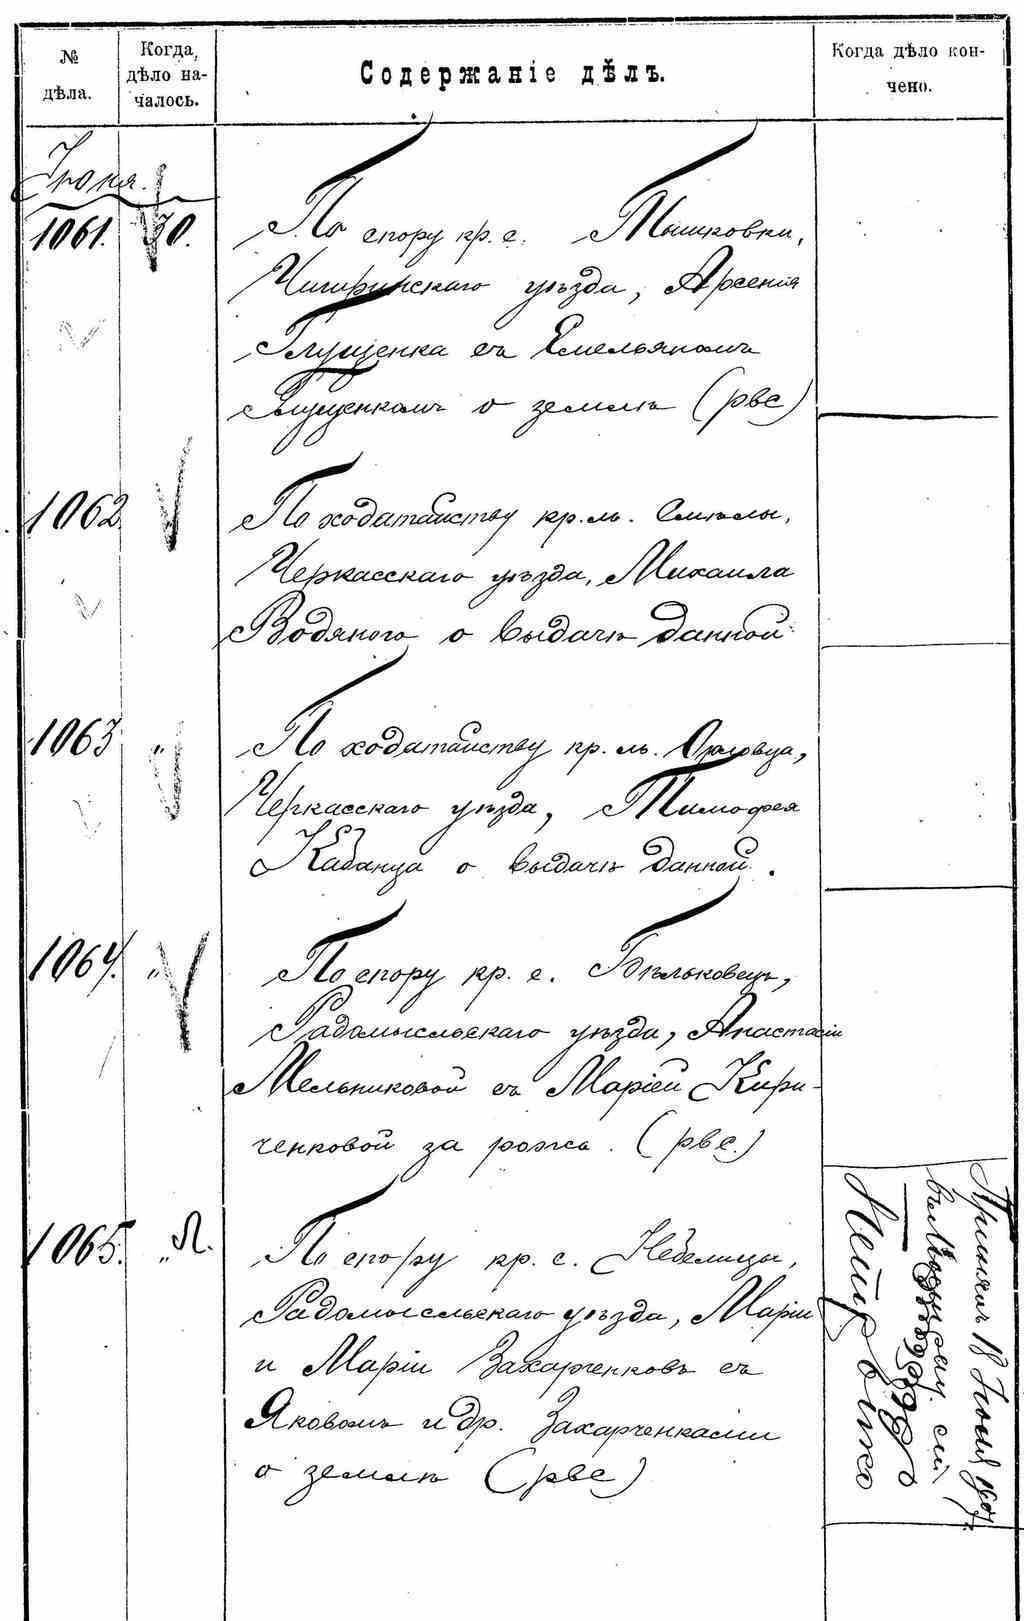 № дѣла.
Когда дѣло на-
чалось.
Содержаніе дѣлъ.
Когда дѣло кон-
чено.
Іюня.
1061. 30.
По спору кр. с. Тышковки,
Чигиринскаго уѣзда, Арсенія
Глущенка съ Емельяномъ
Глущенкомъ о землѣ (рвс)
1062.
По ходатайству кр. м. Смѣлы,
Черкасскаго уѣзда, Михаила
Водяного о выдачѣ данной
1063 "
По ходатайству кр. м. Орловца,
Черкасскаго уѣзда, Тимофея
Кабанца о выдачѣ данной.
1064. "
По спору кр. с. Бѣльковецъ,
Радомысльскаго уѣзда, Анастасіи
Мельниковой съ Маріей Кири-
ченковой за рожь. (рвс.)
1065. "
По спору кр. с. Небелицы,
Радомысльскаго уѣзда, Маріи
и Маріи Захарченковъ съ
Яковомъ и др. Захарченками
о землѣ (рвс)
18 Іюля